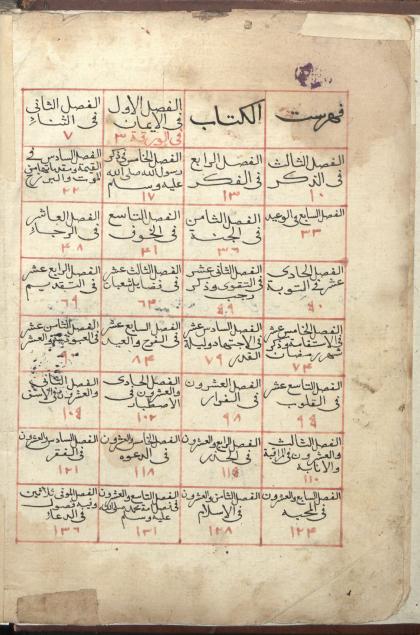 فهرست
الكتاب
الفصل الاول
في الايمان
في الورقة ٣
الفصل الثاني
في الثناء
٧
الفصل الثالث
في الذكر
١٠
الفصل الرابع
في الفكر
١٣
الفصل الخامس في ذكر
رسول الله صلى الله
عليه وسلم
١٧
الفصل السادس في
القيمة
الموت والبرزخ
٢٢
الفصل السابع في الوعيد
٣٣
الفصل الثامن
في الجنة
٣٦
الفصل التاسع
في الخوف
٤١
الفصل العاشر
في الرجاء
٤٨
الفصل الحادي
عشر في التوبة
الفصل الثاني عشر
في التقوى وذكر
رجب
٤٩
الفصل الثالث عشر
شعبان
٦٣
الفصل الرابع عشر
في التقديم
٦٩
الفصل الخامس عشر
في الاستقامة وذكر
شهر رمضان
٧٤
الفصل السادس عشر
في الاجتهاد وليلة
القدر ٧٩
الفصل السابع عشر
والعيد
٨٤
الفصل الثامن عشر
٩٠
الفصل التاسع عشر
في القلوب
٩٤
الفصل العشرون
في الفرار
٩٨
الفصل الحادي
والعشرون في
الاصطبار ١٠٢
الفصل الثاني
والعشرون
١٠٤
الفصل الثالث
والعشرون في المراقبة
والانابة
١١٠
الفصل الرابع والعشرون
في الحذر
١١٤
الفصل الخامس والعشرون
في الدعوة
١١٨
الفصل السادس والعشرون
في الفقر
١٢١
الفصل السابع والعشرون
في المحبة
١٢٤
الفصل الثامن والعشرون
في الاسلام
١٢٨
الفصل التاسع والعشرون
في فضل امة محمد صلى الله
عليه وسلم
١٣١
الفصل الموفي ثلاثين
وفيه فصول
في الدعاء
١٣٦